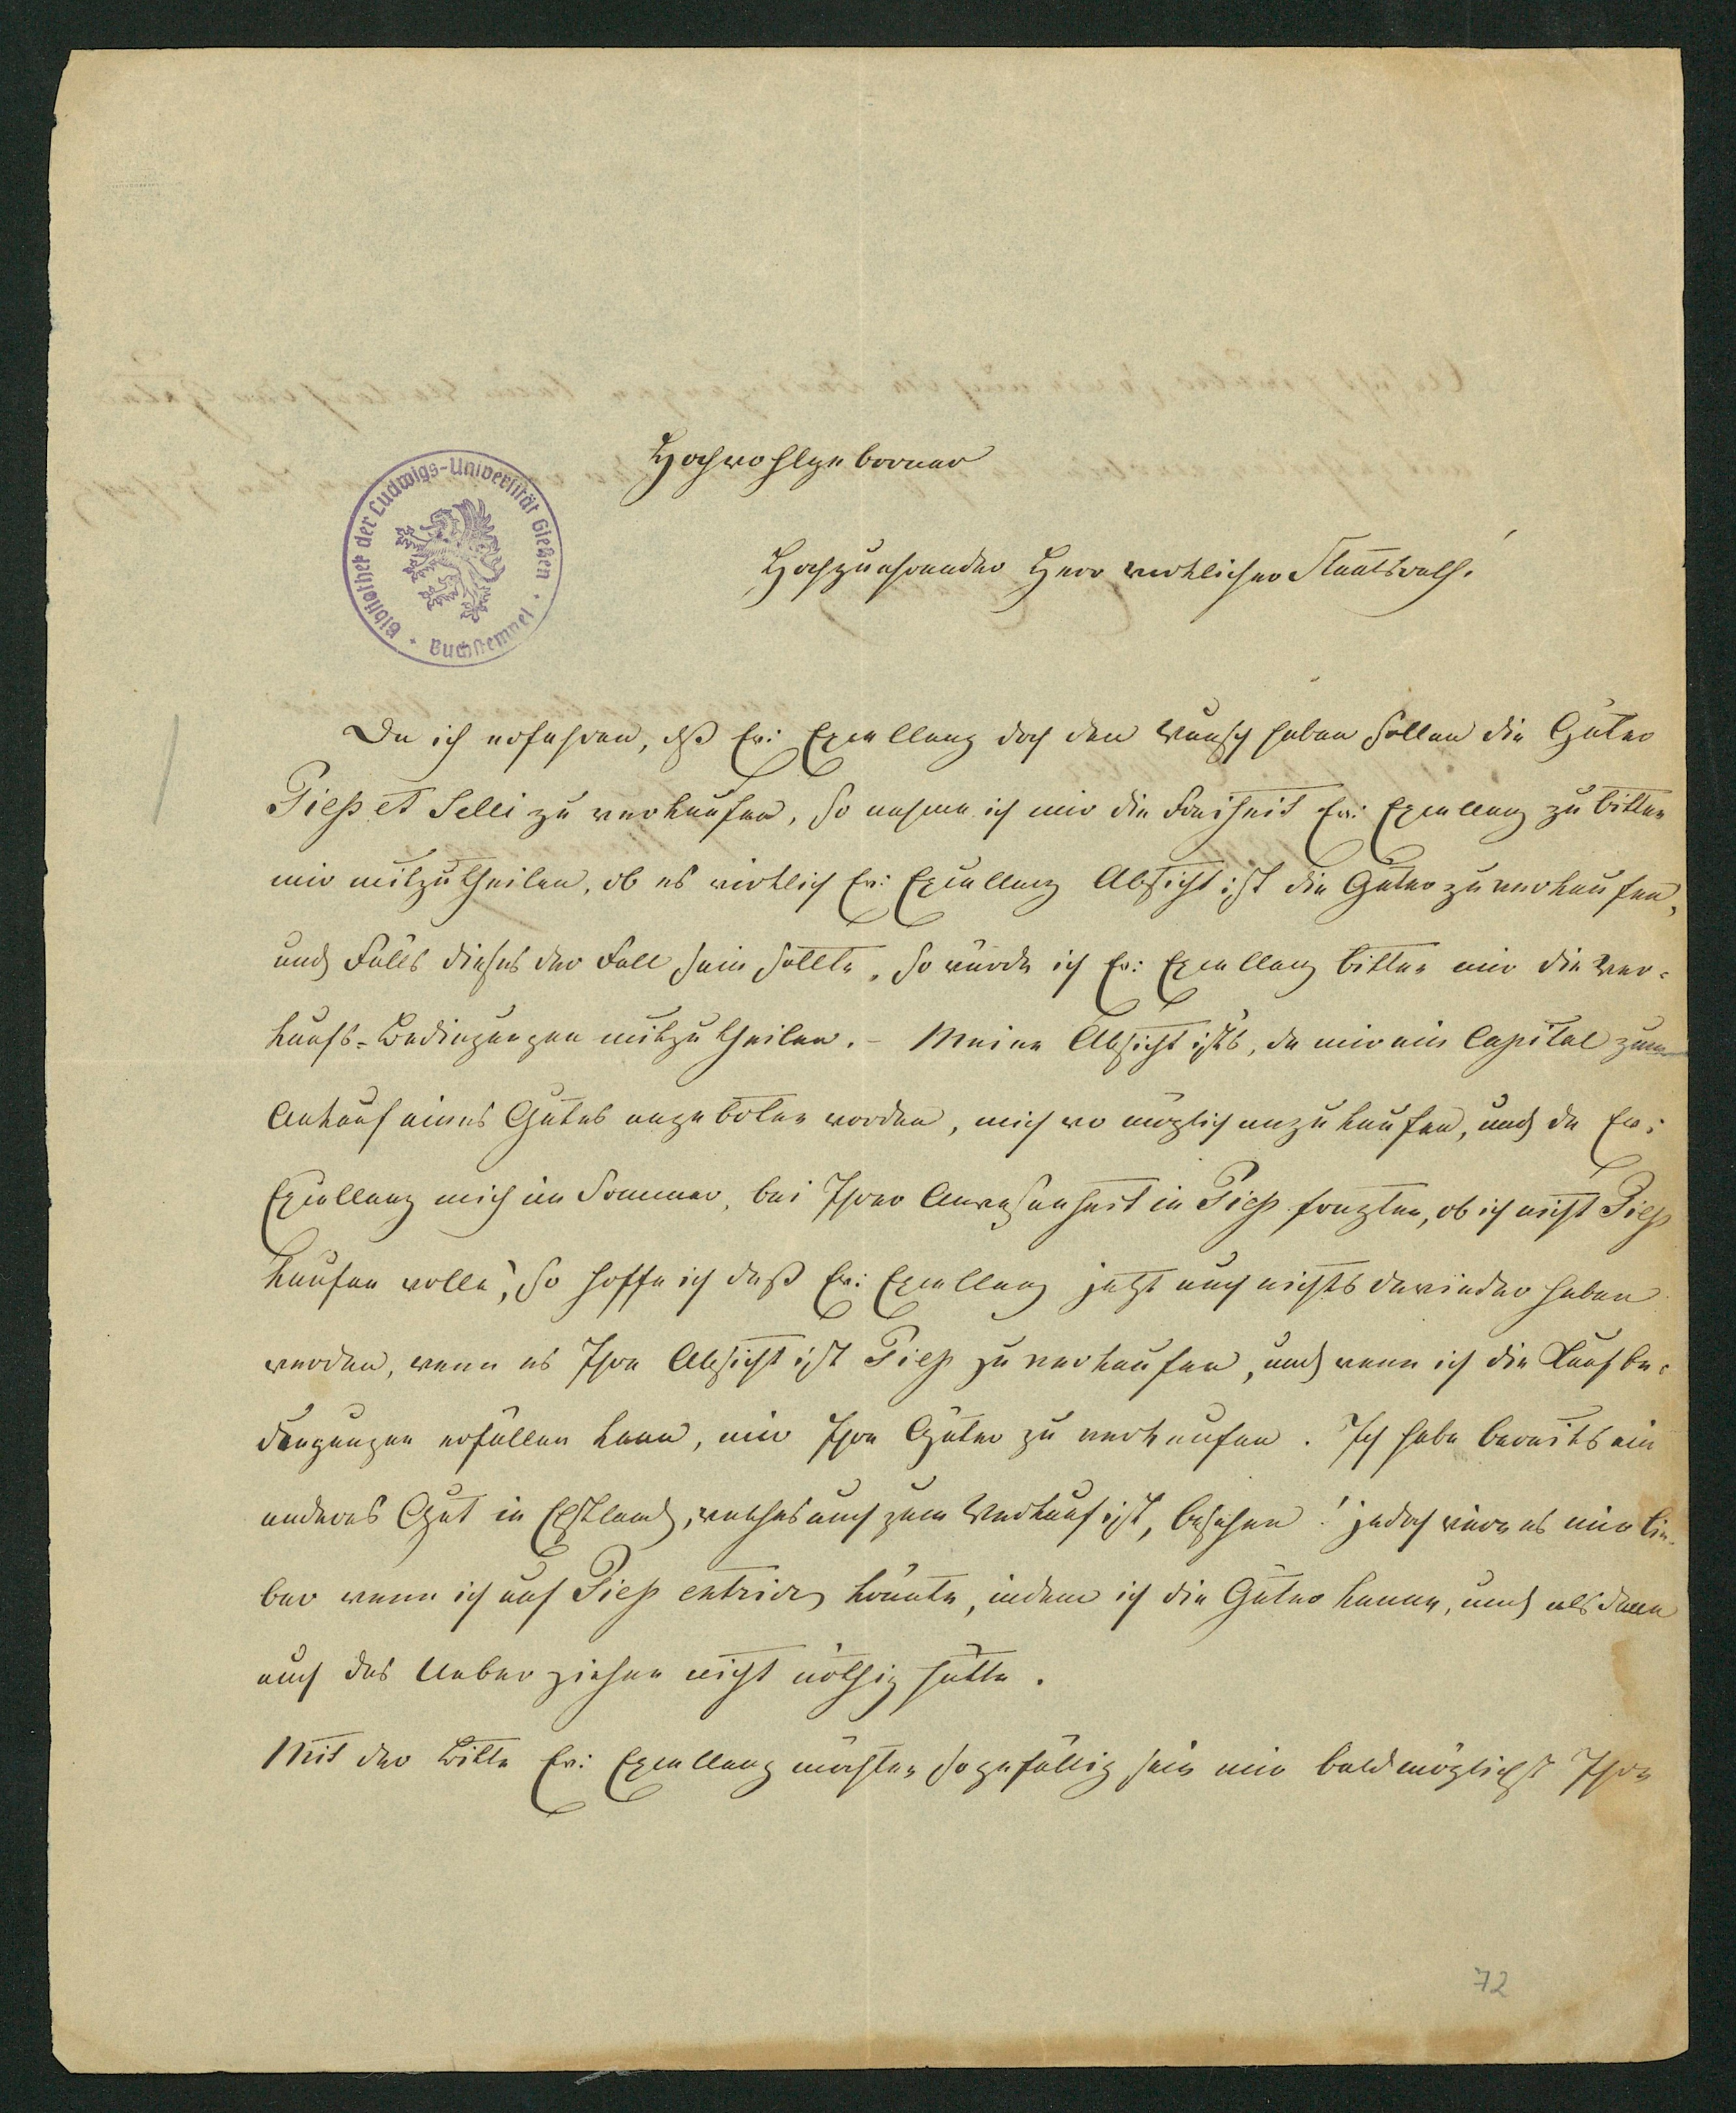 Hochwohlgeborner
Bibliothek der Ludwigs-Universität Gießen · Buchstempel ·
Hochzuehrender Herr wirklicher Staatsrath!
Da ich erfahren, dß Ew: Excellenz doch den Wunsch haben sollen die Güter
Piep et Selli zu verkaufen, so nehme ich mir die Freiheit Ew: Excellenz zu bitten
mir mitzutheilen, ob es wirklich Ew: Excellenz Absicht ist die Güter zu verkaufen,
und Falls dieses der Fall sein sollte, so würde ich Ew: Excellenz bitten mir die Ver-
kaufs-Bedingungen mitzutheilen. – Meine Absicht ists, da mir ein Capital zum
Ankauf eines Gutes angeboten worden, mich wo möglich anzukaufen, und da Ew:
Excellenz mich im Sommer, bei Ihrer Anwesenheit in Piep fragten, ob ich nicht Piep
kaufen wolle, so hoffe ich daß Ew: Excellenz jetzt auch nichts dawieder haben
werden, wenn es Ihre Absicht ist Piep zu verkaufen, und wenn ich die Kaufbe-
dingungen erfüllen kann, mir Ihre Güter zu verkaufen. Ich habe bereits ein
anderes Gut in Ehstland, welches auch zum Verkauf ist, besehen! jedoch wäre es mir lie-
ber wenn ich auf Piep entriren könnte, indem ich die Güter kenne, und alsdann
auch das Ueberziehen nicht nöthig hätte.
Mit der Bitte Ew: Excellenz möchten so gefällig sein mir baldmöglichst Ihre
72